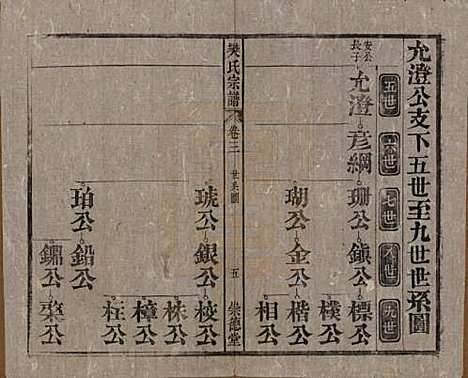 允澄公支下五世至九世世系圖
五世 六世 七世 八世 九世
安公長子 允澄 彦綱 珊公 鎮公 標公
樸公
瑚公 金公 楷公
相公
樊氏宗譜 卷三 世系圖 五 崇德堂
琥公 銀公 棱公
株公
樟公
柱公
珀公 鉛公
鏽公 榮公